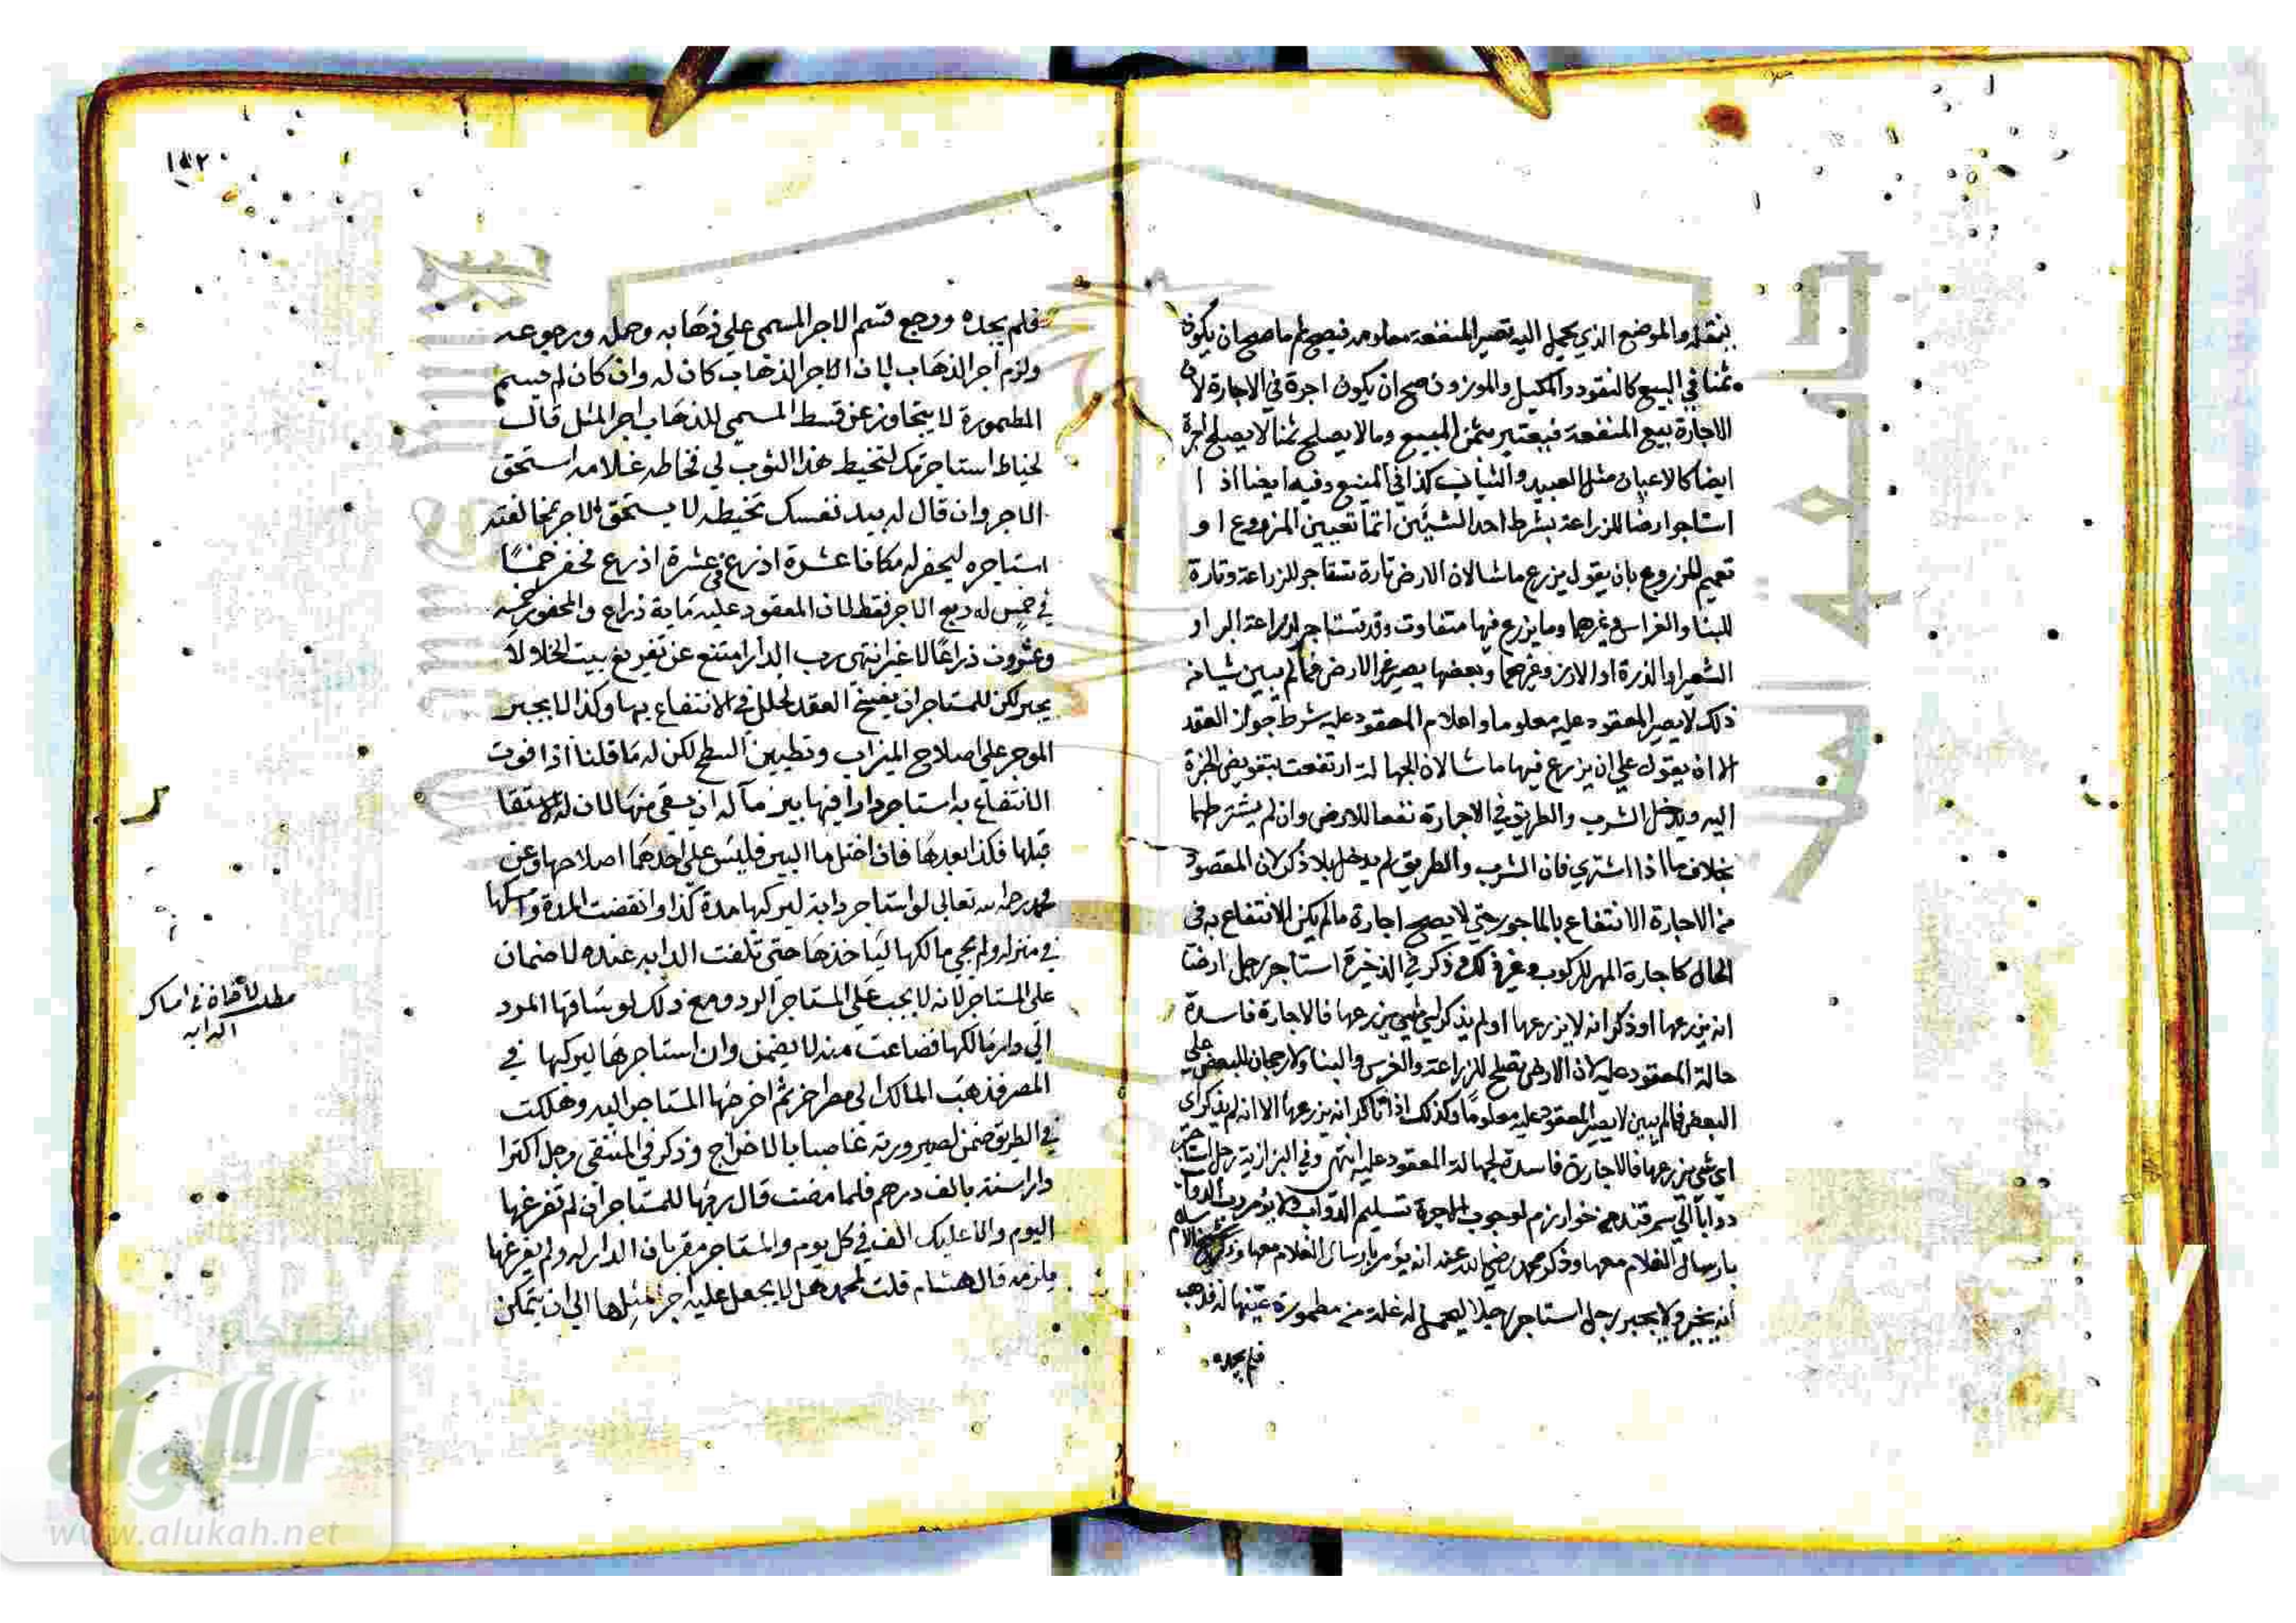 ينقله والموضع الذي يحمل اليه تصير المنفعة معلومه فيصح ثم ما صح ان يكون
ثمنا في البيع كالنقود والمكيل والموزون صح ان يكون اجرة في الاجارة لان
الاجارة بيع المنفعة فيعتبر بثمن المبيع وما لا يصلح ثمنا لا يصلح اجرة
ايضا كالاعيان مثل العبيد والثياب كذا في المنبع وفيه ايضا اذا
استاجر ارضا للزراعة بشرط احد الشيئين اما تعيين المزروع او
تعميم المزروع بان يقول يزرع ما شا لان الارض تارة تستاجر للزراعة وتارة
للبنا والغراس وغيرهما وما يزرع فيها متفاوت وقد تستاجر لزراعة البر او
الشعير او الذرة او الارز وغيرهما وبعضها يضر الارض فما لم يبين شيا من
ذلك لا يصير المعقود عليه معلوما واعلام المعقود عليه شرط جواز العقد
الا ان يقول على ان يزرع فيها ما شا لان الجهالة ارتفعت بتفويض الخيرة
اليه ويدخل الشرب والطريق في الاجارة نفعا للارض وان لم يشترطها
بخلاف ما اذا اشتري فان الشرب والطريق لم يدخل بلا ذكر لان المقصود
من الاجارة الانتفاع بالماجور حتي لا يصح اجارة ما لم يكن الانتفاع به في
الحال كاجارة المهر للركوب وغير ذلك وذكر في الذخيرة استاجر رجل ارضا
انه يزرعها او ذكر انه لا يزرعها او لم يذكر اي شي يزرعها فالاجارة فاسدة
حالة المعقود عليه لان الارض تصلح للزراعة والغرس والبنا ولا رجحان للبعض على
البعض فما لم يبين لا يصير المعقود عليه معلوما وكذلك اذا ذكر انه يزرعها الا انه لم يذكر اي
اي شي يزرعها فالاجارة فاسدة لجهالة المعقود عليه انتهى وفي البزازية رجل استاجر
دوابا الي سمرقند من خوارزم لوجوب الاجرة تسليم الدواب لا يؤمر رب الدواب
بارسال الغلام معها وذكر محمد رضي الله عنه انه يؤمر بارسال الغلام معها
انه يخير ولا يجبر رجل استاجر رجلا ليحمل له غلة من مطمورة عينها له فذهب
فلم يجده
١٥٢
فلم يجده ورجع قسم الاجر المسمى علي ذهابه وحمله ورجوعه
ولزم اجر الذهاب لان الاجر الذهاب كان له وان كان لم يسم
المطمورة لا يتجاوز عن قسط المسمي للذهاب اجر المثل قال
لخياط استاجرتك لتخيط هذا الثوب لي فخاطه غلامه استحق
الاجر وان قال له بيد نفسك تخيطه لا يستحق الاجر لمخالفته
استاجره ليحفر له مكانا عشرة اذرع في عشرة اذرع فحفر خمسًا
في خمس له ربع الاجر فقط لان المعقود عليه ماية ذراع والمحفور خمسه
وعشرون ذراعًا لا غير انتهى رب الدار امتنع عن تفريغ بيت الخلا ولا
يجبر لكن للمستاجر ان يفسخ العقد لخلل في الانتفاع بها وكذا لا يجبر
الموجر على اصلاح الميزاب وتطيين السطح لكن له ما قلنا اذا فوت
الانتفاع به استاجر دارا فيها بير ماله ان يسقي منها لان له الاستقا
قبلها فكذا بعدها فان اختل ما البير فليس على احدهما اصلاحها وعن
محمد رحمه الله تعالى لو استاجر دابة ليركبها مدة كذا وانقضت المدة وامسكها
في منزله ولم يجي مالكها لياخذها حتى تلفت الدابه عنده لا ضمان
على المستاجر لانه لا يجب على المستاجر الرد ومع ذلك لو ساقها المرد
الى دار مالكها فضاعت منه لا يضمن وان استاجرها ليركبها في
المصر فذهب المالك الى مصر اخر ثم اخرجها المستاجر اليه وهلكت
في الطريق ضمن لصيرورته غاصبا بالاخراج وذكر في المنتقى رجل اكترا
دارا سنة بالف درهم فلما مضت قال ربها للمستاجر ان لم تفرغها
اليوم والا عليك الف في كل يوم والمستاجر مقر بان الدار له ولم يفرغها
يلزمه قال هشام قلت لمحمد هل لا يجعل عليه اجر مثلها الى ان يتمكن
في امساك
الدابه
شبكة
الألوكة
www.alukah.net